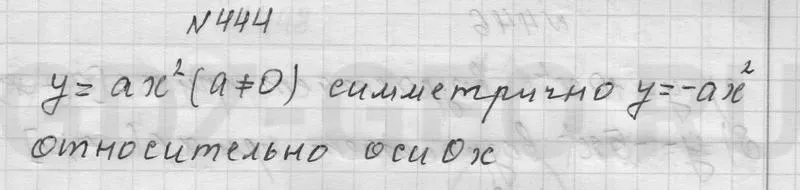 №444
y = ax² (a ≠ 0) симметрично y = -ax²
относительно оси Ox